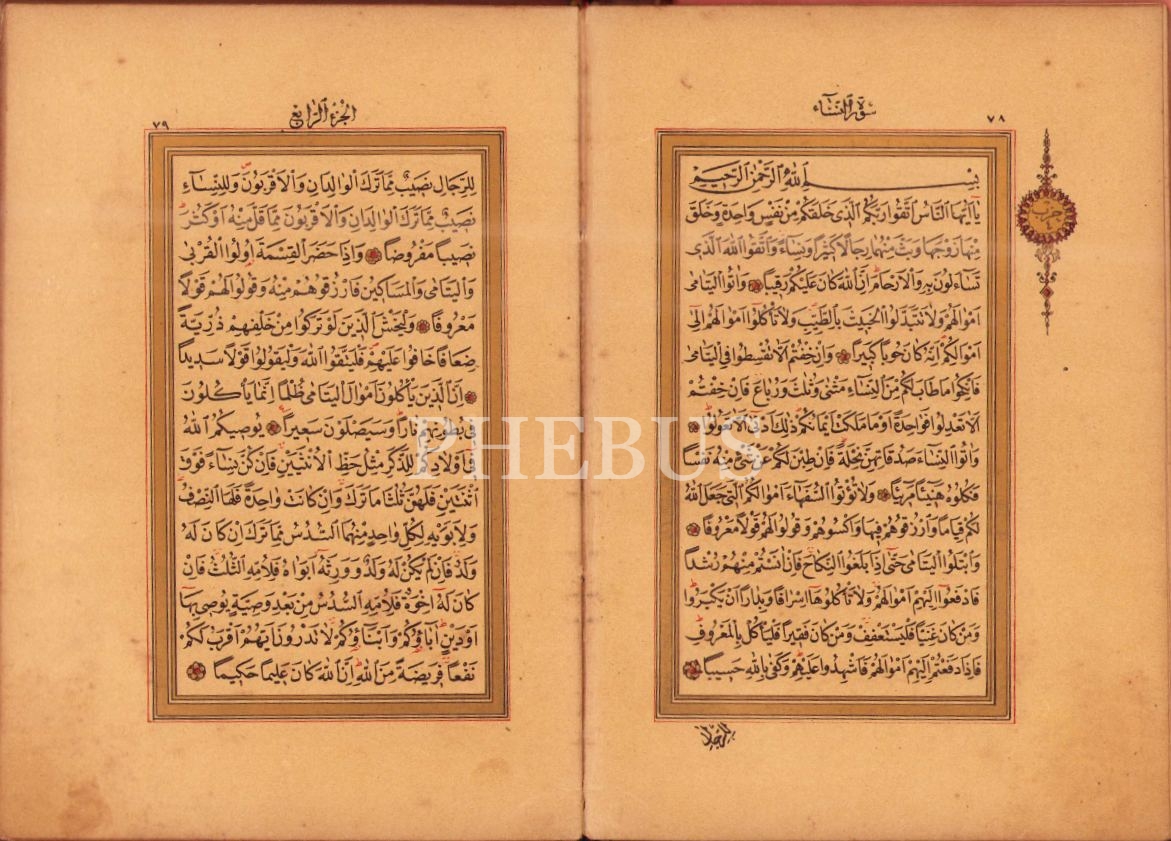 ٧٨
سورة النساء
حزب
٤
بسم الله الرحمن الرحيم
يَاۤاَيُّهَا النَّاسُ اتَّقُوا رَبَّكُمُ الَّذِى خَلَقَكُمْ مِنْ نَفْسٍ وَاحِدَةٍ وَخَلَقَ
مِنْهَا زَوْجَهَا وَبَثَّ مِنْهُمَا رِجَالًا كَثِيرًا وَنِسَاۤءً وَاتَّقُوا اللهَ الَّذِى
تَسَاۤءَلُونَ بِهِ وَالْاَرْحَامَ اِنَّ اللهَ كَانَ عَلَيْكُمْ رَقِيبًا وَاٰتُوا الْيَتَامٰى
اَمْوَالَهُمْ وَلَا تَتَبَدَّلُوا الْخَبِيثَ بِالطَّيِّبِ وَلَا تَأْكُلُوا اَمْوَالَهُمْ اِلٰى
اَمْوَالِكُمْ اِنَّهُ كَانَ حُوبًا كَبِيرًا وَاِنْ خِفْتُمْ اَلَّا تُقْسِطُوا فِى الْيَتَامٰى
فَانْكِحُوا مَا طَابَ لَكُمْ مِنَ النِّسَاۤءِ مَثْنٰى وَثُلٰثَ وَرُبَاعَ فَاِنْ خِفْتُمْ
اَلَّا تَعْدِلُوا فَوَاحِدَةً اَوْ مَا مَلَكَتْ اَيْمَانُكُمْ ذٰلِكَ اَدْنٰى اَلَّا تَعُولُوا
وَاٰتُوا النِّسَاۤءَ صَدُقَاتِهِنَّ نِحْلَةً فَاِنْ طِبْنَ لَكُمْ عَنْ شَىْءٍ مِنْهُ نَفْسًا
فَكُلُوهُ هَنِيۤئًا مَرِيۤئًا وَلَا تُؤْتُوا السُّفَهَاۤءَ اَمْوَالَكُمُ الَّتِى جَعَلَ اللهُ
لَكُمْ قِيَامًا وَارْزُقُوهُمْ فِيهَا وَاكْسُوهُمْ وَقُولُوا لَهُمْ قَوْلًا مَعْرُوفًا
وَابْتَلُوا الْيَتَامٰى حَتّٰۤى اِذَا بَلَغُوا النِّكَاحَ فَاِنْ اٰنَسْتُمْ مِنْهُمْ رُشْدًا
فَادْفَعُوۤا اِلَيْهِمْ اَمْوَالَهُمْ وَلَا تَأْكُلُوهَاۤ اِسْرَافًا وَبِدَارًا اَنْ يَكْبَرُوا
وَمَنْ كَانَ غَنِيًّا فَلْيَسْتَعْفِفْ وَمَنْ كَانَ فَقِيرًا فَلْيَأْكُلْ بِالْمَعْرُوفِ
فَاِذَا دَفَعْتُمْ اِلَيْهِمْ اَمْوَالَهُمْ فَاَشْهِدُوا عَلَيْهِمْ وَكَفٰى بِاللهِ حَسِيبًا
للرجال
الجزء الرابع
٧٩
لِلرِّجَالِ نَصِيبٌ مِمَّا تَرَكَ الْوَالِدَانِ وَالْاَقْرَبُونَ وَلِلنِّسَاۤءِ
نَصِيبٌ مِمَّا تَرَكَ الْوَالِدَانِ وَالْاَقْرَبُونَ مِمَّا قَلَّ مِنْهُ اَوْ كَثُرَ
نَصِيبًا مَفْرُوضًا وَاِذَا حَضَرَ الْقِسْمَةَ اُولُوا الْقُرْبٰى
وَالْيَتَامٰى وَالْمَسَاكِينُ فَارْزُقُوهُمْ مِنْهُ وَقُولُوا لَهُمْ قَوْلًا
مَعْرُوفًا وَلْيَخْشَ الَّذِينَ لَوْ تَرَكُوا مِنْ خَلْفِهِمْ ذُرِّيَّةً
ضِعَافًا خَافُوا عَلَيْهِمْ فَلْيَتَّقُوا اللهَ وَلْيَقُولُوا قَوْلًا سَدِيدًا
اِنَّ الَّذِينَ يَأْكُلُونَ اَمْوَالَ الْيَتَامٰى ظُلْمًا اِنَّمَا يَأْكُلُونَ
فِى بُطُونِهِمْ نَارًا وَسَيَصْلَوْنَ سَعِيرًا يُوصِيكُمُ اللهُ
فِىۤ اَوْلَادِكُمْ لِلذَّكَرِ مِثْلُ حَظِّ الْاُنْثَيَيْنِ فَاِنْ كُنَّ نِسَاۤءً فَوْقَ
اثْنَتَيْنِ فَلَهُنَّ ثُلُثَا مَا تَرَكَ وَاِنْ كَانَتْ وَاحِدَةً فَلَهَا النِّصْفُ
وَلِاَبَوَيْهِ لِكُلِّ وَاحِدٍ مِنْهُمَا السُّدُسُ مِمَّا تَرَكَ اِنْ كَانَ لَهُ
وَلَدٌ فَاِنْ لَمْ يَكُنْ لَهُ وَلَدٌ وَوَرِثَهُ اَبَوَاهُ فَلِاُمِّهِ الثُّلُثُ فَاِنْ
كَانَ لَهُ اِخْوَةٌ فَلِاُمِّهِ السُّدُسُ مِنْ بَعْدِ وَصِيَّةٍ يُوصِى بِهَا
اَوْ دَيْنٍ اٰبَاؤُكُمْ وَاَبْنَاؤُكُمْ لَا تَدْرُونَ اَيُّهُمْ اَقْرَبُ لَكُمْ
نَفْعًا فَرِيضَةً مِنَ اللهِ اِنَّ اللهَ كَانَ عَلِيمًا حَكِيمًا
PHEBUS